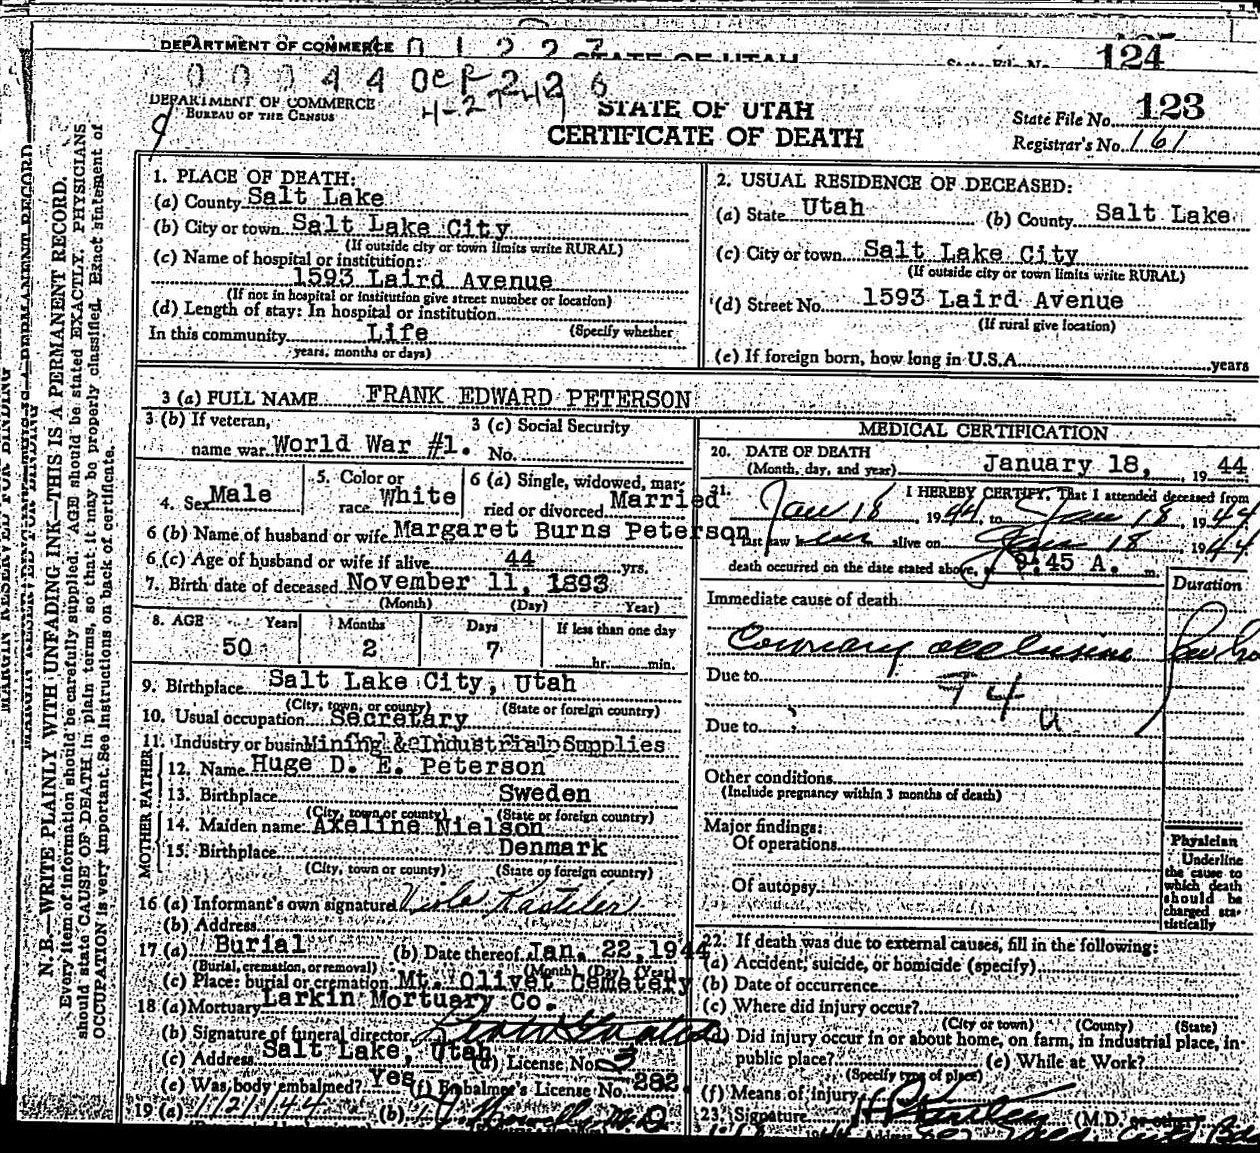 DEPARTMENT OF COMMERCE
STATE OF UTAH
State File No. 124
DEPARTMENT OF COMMERCE
BUREAU OF THE CENSUS
STATE OF UTAH
CERTIFICATE OF DEATH
State File No. 123
Registrar's No. 161
MARGIN RESERVED FOR BINDING
N. B.—WRITE PLAINLY WITH UNFADING INK—THIS IS A PERMANENT RECORD.
Every item of information should be carefully supplied. AGE should be stated EXACTLY. PHYSICIANS
should state CAUSE OF DEATH in plain terms, so that it may be properly classified. Exact statement of
OCCUPATION is very important. See instructions on back of certificate.
1. PLACE OF DEATH:
(a) County Salt Lake
(b) City or town Salt Lake City
(If outside city or town limits write RURAL)
(c) Name of hospital or institution:
1593 Laird Avenue
(If not in hospital or institution give street number or location)
(d) Length of stay: In hospital or institution
In this community Life (Specify whether
years, months or days)
2. USUAL RESIDENCE OF DECEASED:
(a) State Utah (b) County Salt Lake
(c) City or town Salt Lake City
(If outside city or town limits write RURAL)
(d) Street No. 1593 Laird Avenue
(If rural give location)
(e) If foreign born, how long in U.S.A. years
3 (a) FULL NAME FRANK EDWARD PETERSON
3 (b) If veteran,
name war World War #1.
3 (c) Social Security
No.
4. Sex Male
5. Color or
race White
6 (a) Single, widowed, mar-
ried or divorced Married
6 (b) Name of husband or wife Margaret Burns Peterson
6 (c) Age of husband or wife if alive 44 yrs.
7. Birth date of deceased November 11, 1893
(Month) (Day) Year)
8. AGE Years Months Days If less than one day
50 2 7 hr. min.
9. Birthplace Salt Lake City, Utah
(City, town, or county) (State or foreign country)
10. Usual occupation Secretary
11. Industry or busin Mining & Industrial Supplies
FATHER
12. Name Huge D. E. Peterson
13. Birthplace Sweden
(City, town or county) (State or foreign country)
MOTHER
14. Maiden name: Axeline Nielson
15. Birthplace Denmark
(City, town or county) (State or foreign country)
16 (a) Informant's own signature Viola Kasteler
(b) Address
17 (a) Burial (b) Date thereof Jan. 22, 1944
(Burial, cremation, or removal) (Month) (Day) (Year)
(c) Place: burial or cremation Mt. Olivet Cemetery
18 (a) Mortuary Larkin Mortuary Co.
(b) Signature of funeral director
(c) Address Salt Lake, Utah (d) License No. 3
(e) Was body embalmed? Yes (f) Embalmer's License No. 282.
19 (a) 1/21/44 (b) M.D
MEDICAL CERTIFICATION
20. DATE OF DEATH
(Month, day, and year) January 18, 19 44
21. I HEREBY CERTIFY, That I attended deceased from
Jan 18, 19 44, to Jan 18, 19 44
I last saw him alive on Jan 18, 19 44
death occurred on the date stated above, at 9:45 A. m.
Immediate cause of death
Duration
Coronary occlusion
Due to
Due to
Other conditions
(Include pregnancy within 3 months of death)
Major findings:
Of operations
Of autopsy
Physician
Underline
the cause to
which death
should be
charged sta-
tistically
22. If death was due to external causes, fill in the following:
(a) Accident, suicide, or homicide (specify)
(b) Date of occurrence
(c) Where did injury occur?
(City or town) (County) (State)
(d) Did injury occur in or about home, on farm, in industrial place, in
public place? (e) While at Work?
(Specify type of place)
(f) Means of injury
23. Signature (M.D. or other)